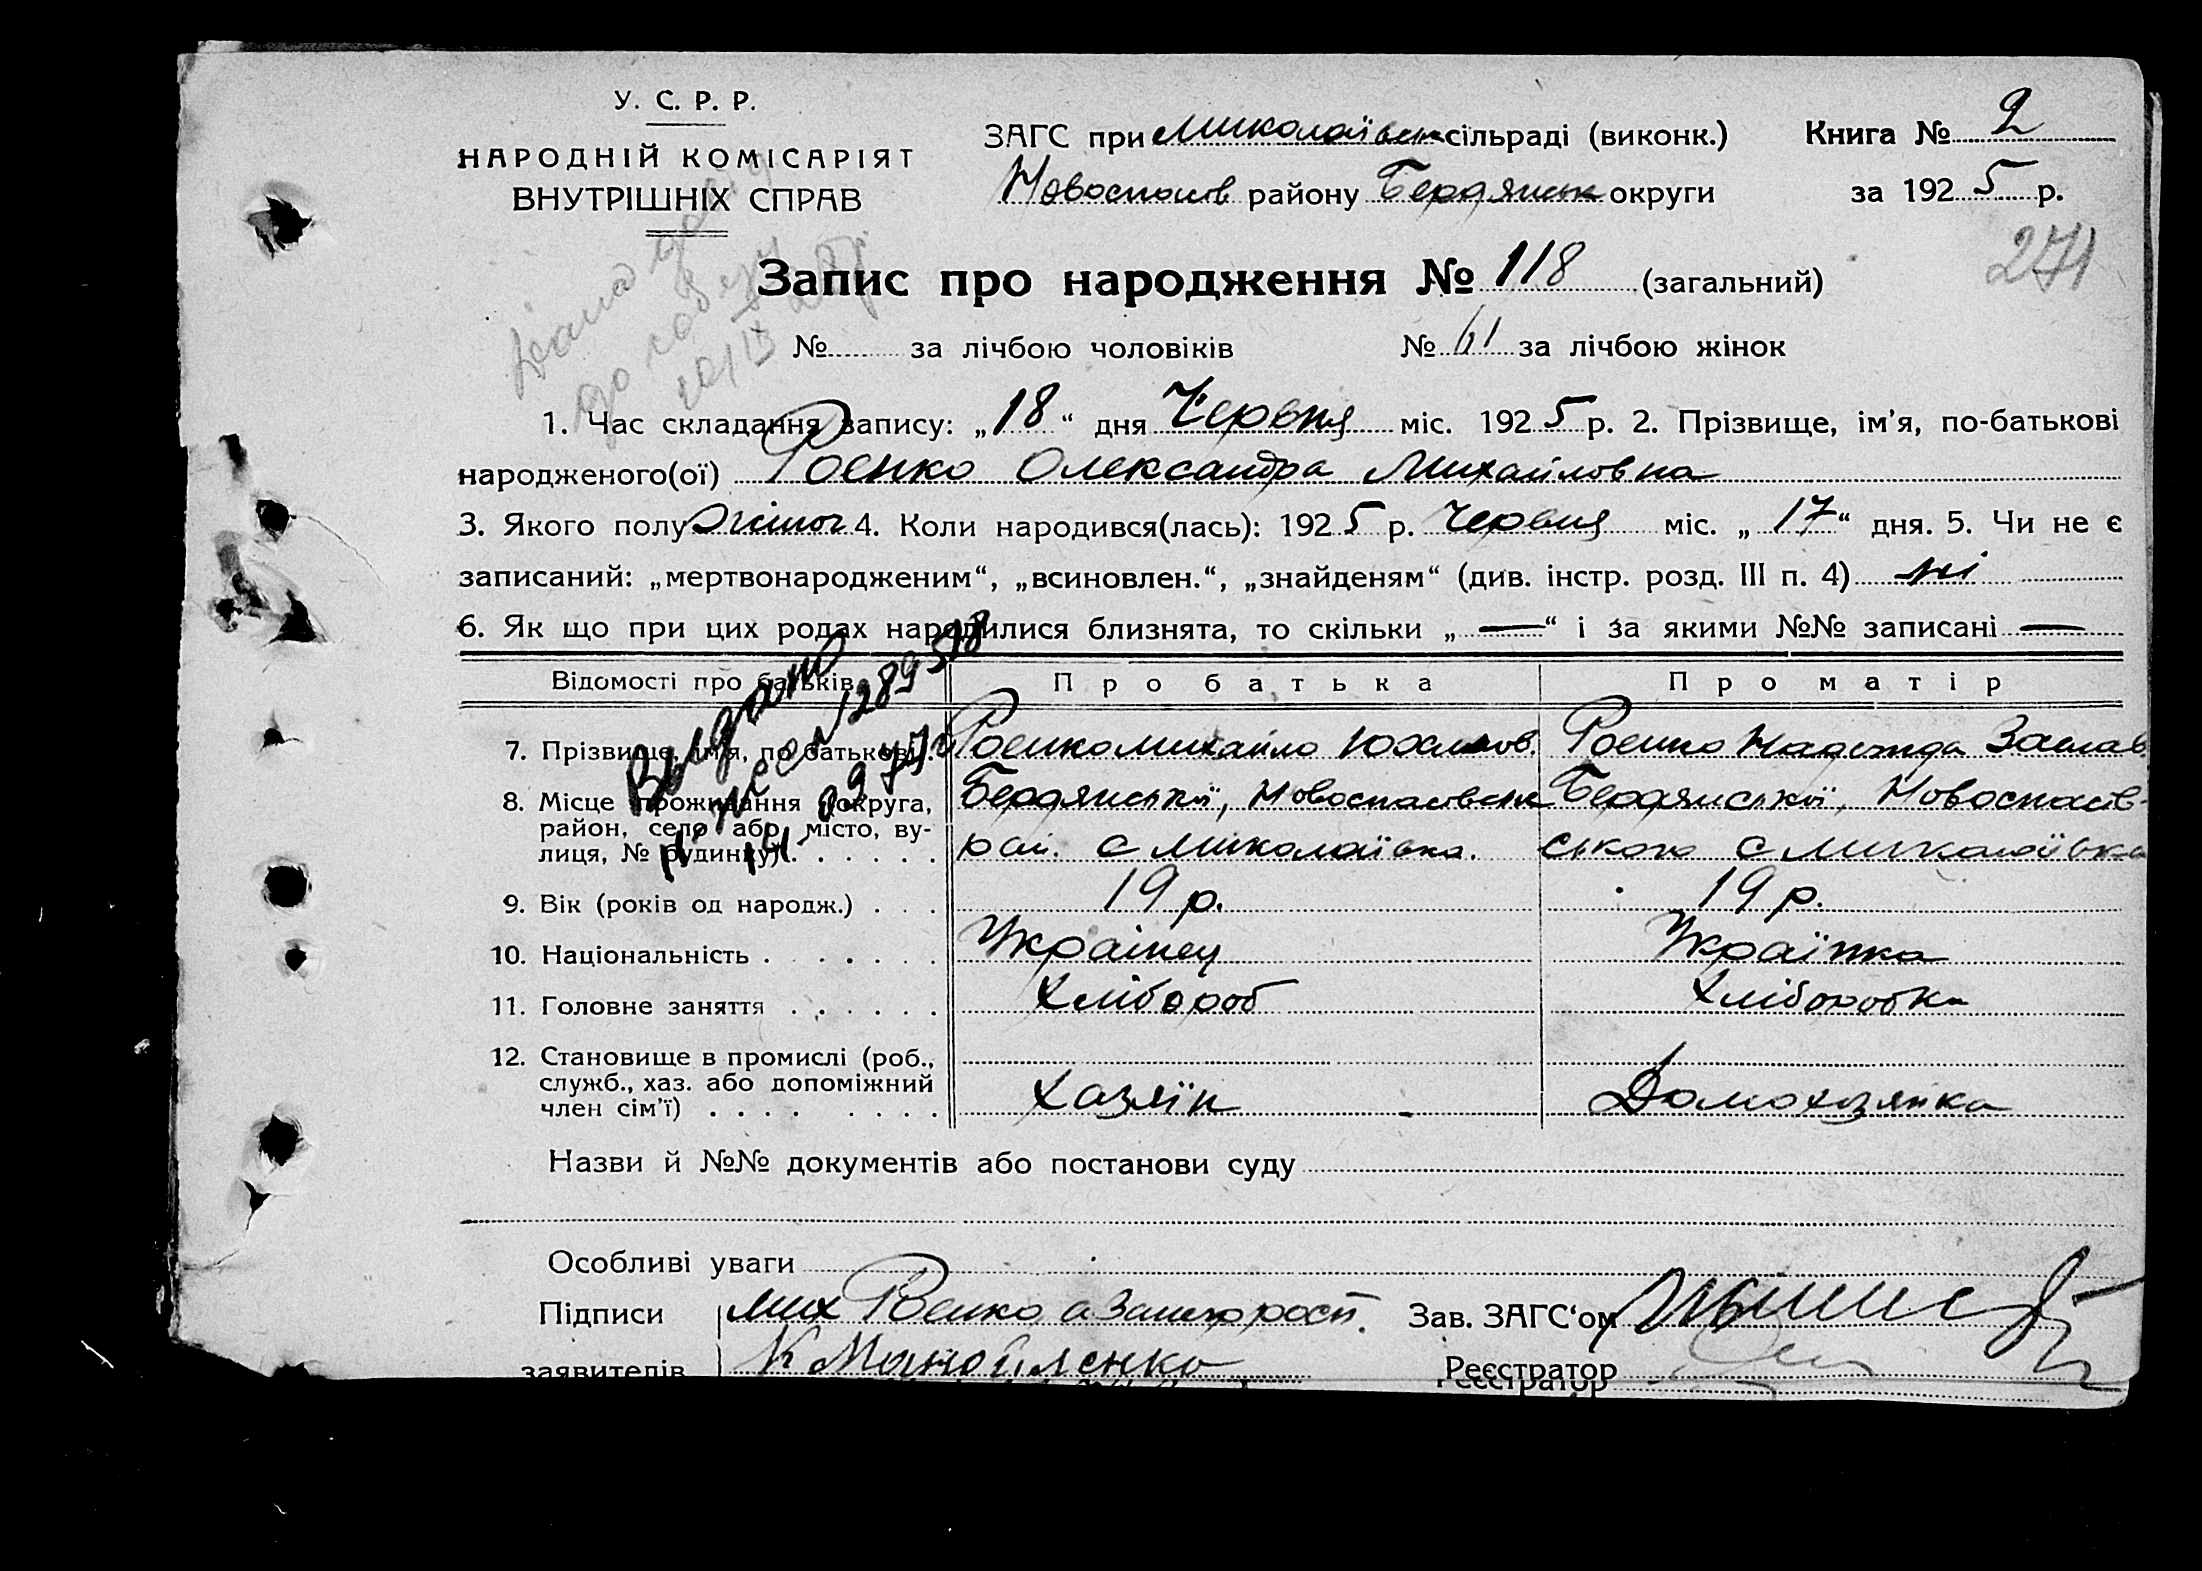 У. С. Р. Р.
НАРОДНІЙ КОМІСАРІЯТ
ВНУТРІШНІХ СПРАВ
ЗАГС при Миколаївськ сільраді (виконк.)
Книга № 2
Новоспасів району Бердянськ округи
за 1925 р.
271
Запис про народження № 118 (загальний)
№ за лічбою чоловіків № 61 за лічбою жінок
1. Час складання запису: „18“ дня Червня міс. 1925 р. 2. Прізвище, ім'я, по-батькові
народженого(ої) Роєнко Олександра Михайловна
3. Якого полу жіноч 4. Коли народився(лась): 1925 р. Червня міс. „17“ дня. 5. Чи не є
записаний: „мертвонародженим“, „всиновлен.“, „знайденям“ (див. інстр. розд. III п. 4) ні
6. Як що при цих родах народилися близнята, то скільки „—“ і за якими №№ записані —
Відомості про батьків Про батька Про матір
7. Прізвище, ім'я, по батькові Роєнко Михайло Юхимов. Роєнко Надежда
8. Місце проживання (округа, Бердянської, Новоспасівськ Бердянської, Новоспасів-
район, село або місто, ву-
лиця, № будинку) рай. с Миколаївка. ського с Миколаївка
9. Вік (років од народж.) . . . 19 р. 19 р.
10. Національність . . . . . . Українец Українка
11. Головне заняття . . . . . . Хлібороб Хлiборобка
12. Становище в промислі (роб.,
служб., хаз. або допоміжний
член сім'ї) . . . . . . . . Хазяїн Домохозяйка
Видано
289518
Назви й №№ документів або постанови суду
Особливі уваги
Підписи Мих Роєнко а за него росп.
Зав. ЗАГС'ом
заявителів К Манойленко
Реєстратор
Реєстратор